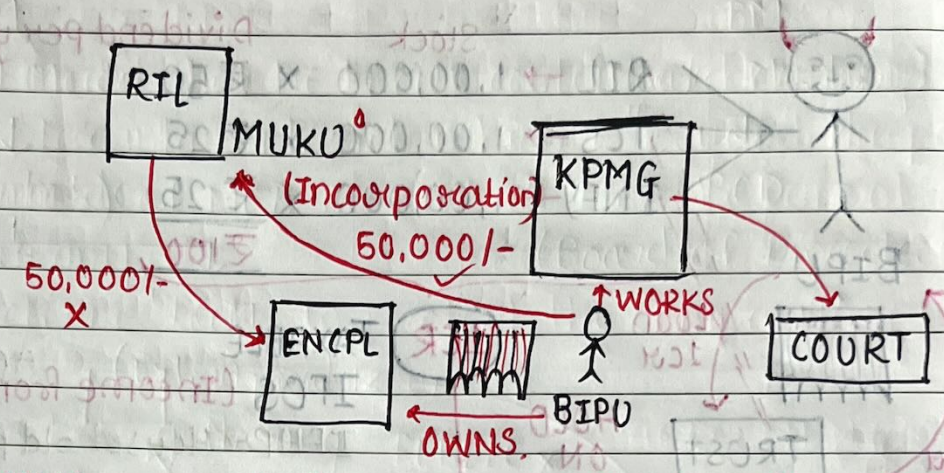 RIL
MUKU
KPMG
(Incorporation)
50,000/-
50,000/-
X
WORKS
ENCPL
COURT
BIPU
OWNS.